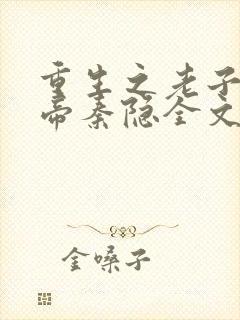 重生之老子
帝秦隐全文
金嗓子